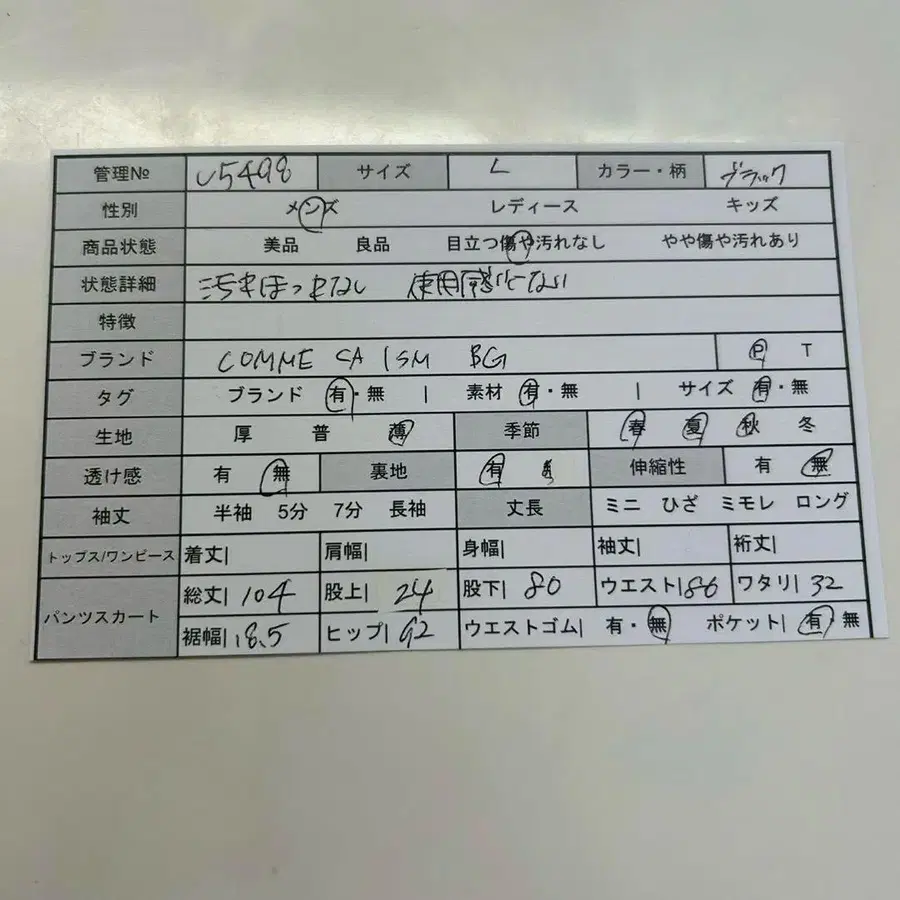 管理№ U5498 サイズ L カラー・柄 ブラック
性別 メンズ レディース キッズ
商品状態 美品 良品 目立つ傷や汚れなし やや傷や汚れあり
状態詳細 汚れほつれなし 使用感
特徴
ブランド COMME CA ISM BG P T
タグ ブランド 有・無 | 素材 有・無 | サイズ 有・無
生地 厚 普 薄 季節 春 夏 秋 冬
透け感 有 無 裏地 有 伸縮性 有 無
袖丈 半袖 5分 7分 長袖 丈長 ミニ ひざ ミモレ ロング
トップス/ワンピース 着丈| 肩幅| 身幅| 袖丈| 裄丈|
パンツスカート 総丈| 104 股上| 24 股下| 80 ウエスト| 86 ワタリ| 32
裾幅| 18.5 ヒップ| 92 ウエストゴム| 有・無 ポケット| 有 無